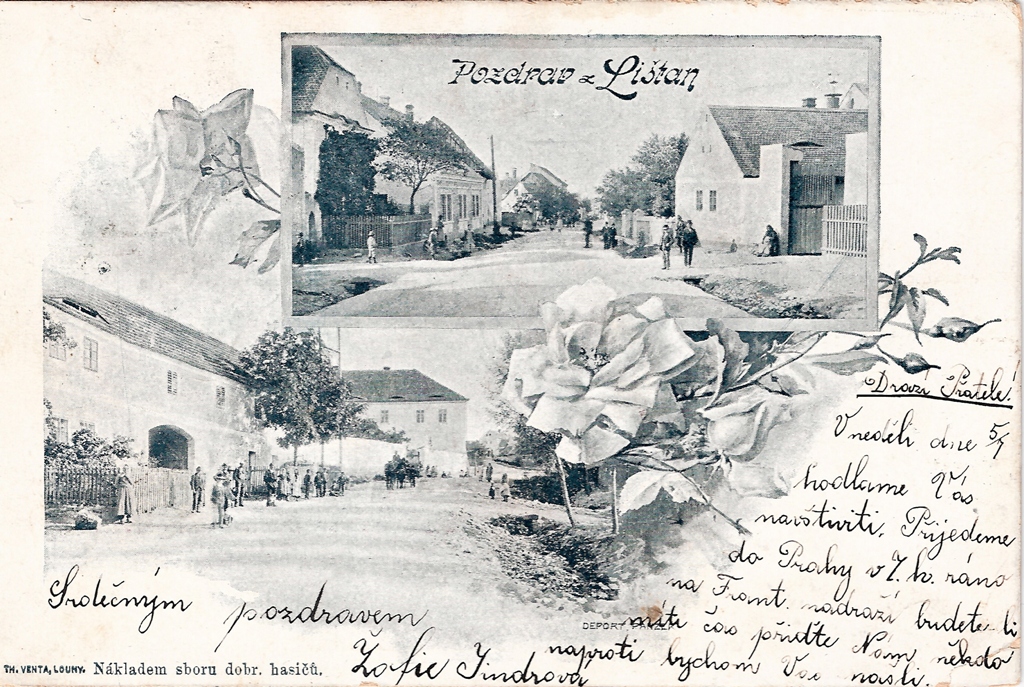 Pozdrav z Lištan
Drazí Přatelé!
V neděli dne 5/7
hodlame Vás
navštiviti. Přijedeme
do Prahy v 7. h. ráno
na Frant. nádraží budete-li
míti čas přiďte Nám někdo
naproti bychom Vás našli.
Srdečným pozdravem
Žofie Jindrova
DEPORT
TH. VENTA, LOUNY. Nákladem sboru dobr. hasičů.